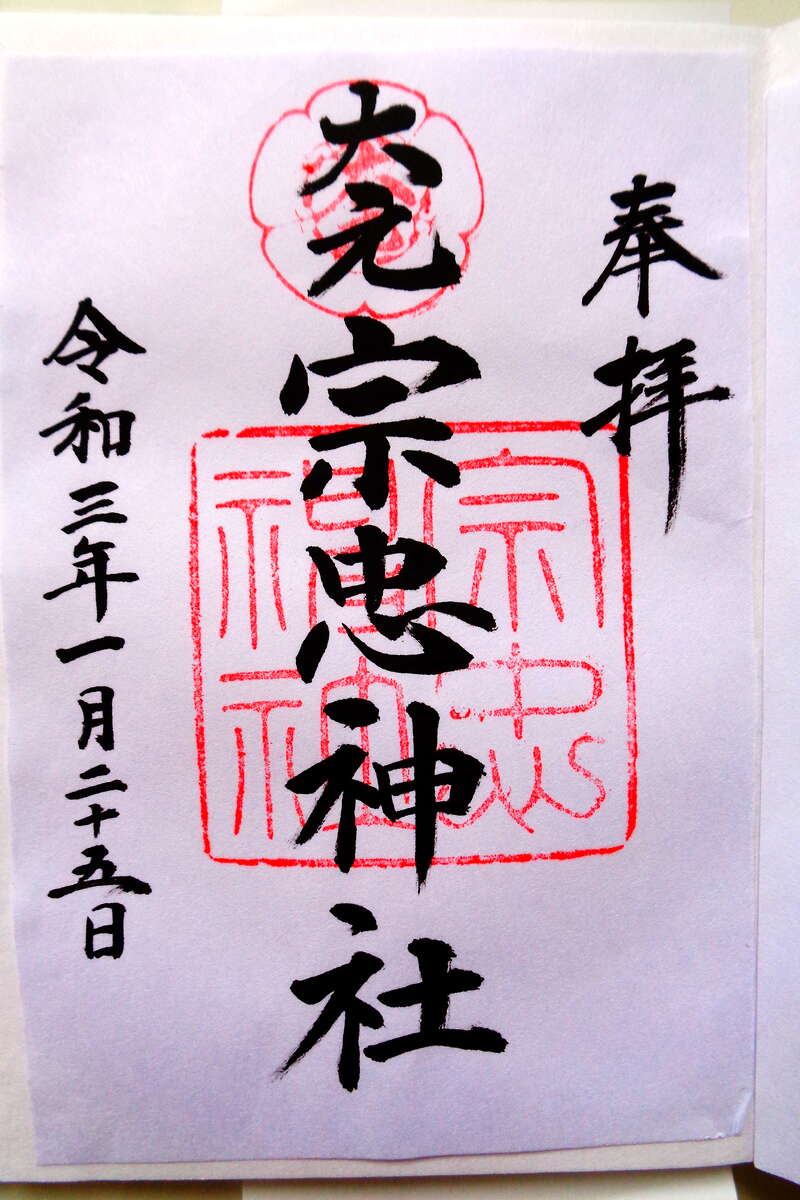 奉拝
大元宗忠神社
宗忠
福神
令和三年一月二十五日